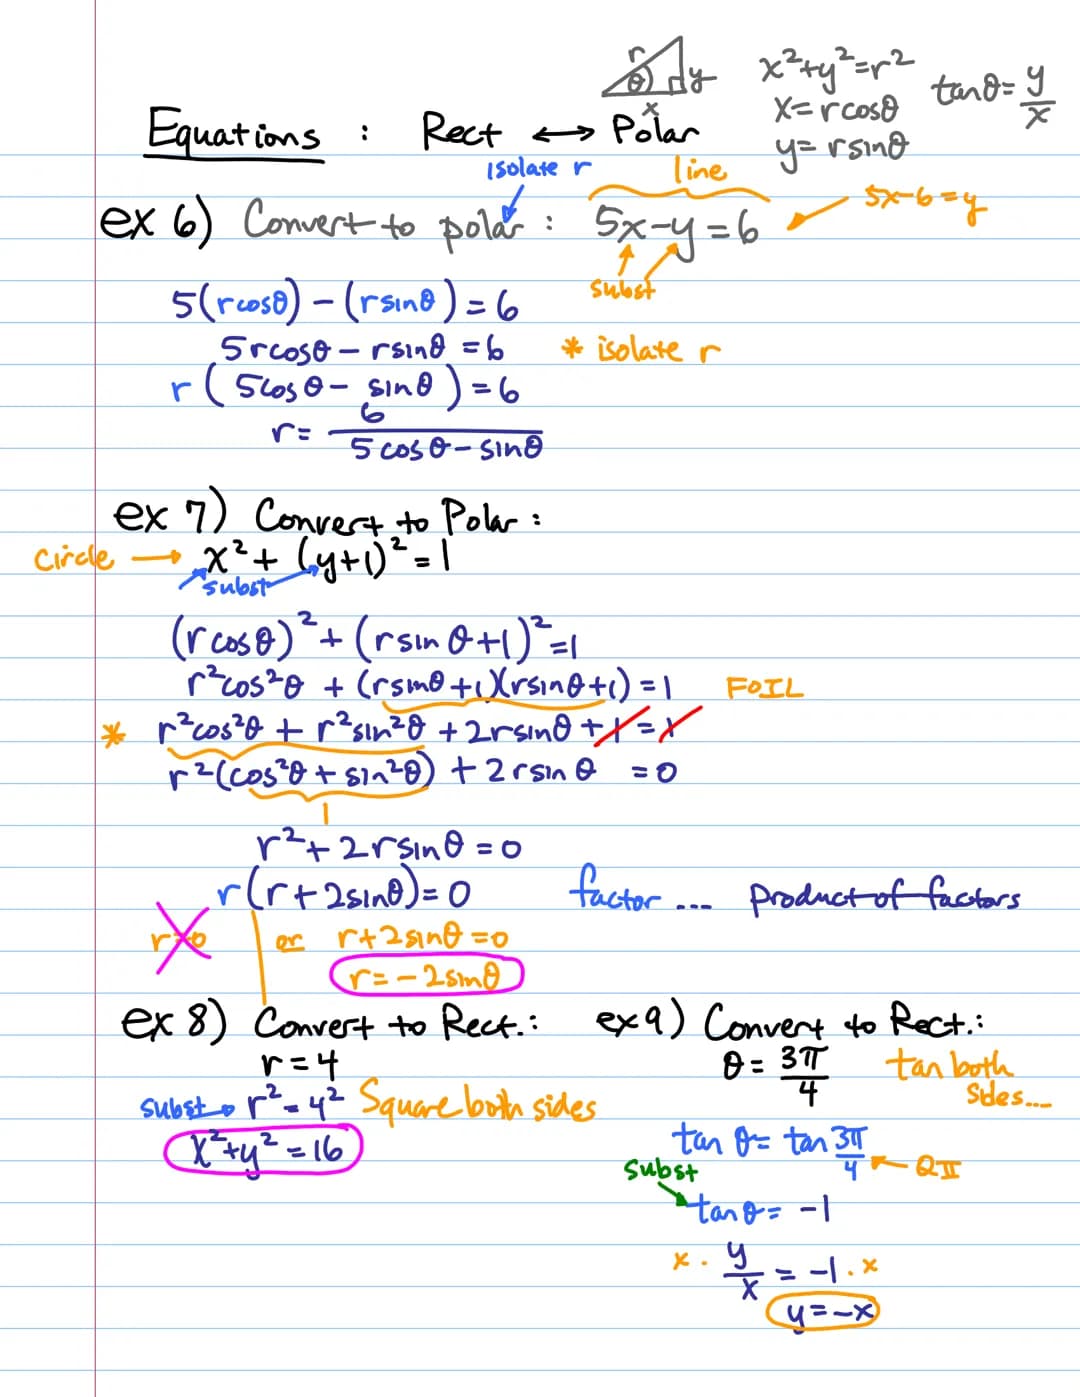 r θ y x
x²+y²=r²
x=rcosθ
y=rsinθ
tanθ=y/x
Equations : Rect ⟷ Polar
isolate r
line
5x-6=y
ex 6) Convert to polar : 5x-y=6
subst
5(rcosθ)-(rsinθ)=6
5rcosθ-rsinθ=6 * isolate r
r(5cosθ-sinθ)=6
r=6/(5cosθ-sinθ)
ex 7) Convert to Polar :
Circle → x²+(y+1)²=1
subst
(rcosθ)²+(rsinθ+1)²=1
r²cos²θ+(rsinθ+1)(rsinθ+1)=1 FOIL
* r²cos²θ+r²sin²θ+2rsinθ+1=1
r²(cos²θ+sin²θ)+2rsinθ =0
1
r²+2rsinθ=0
r(r+2sinθ)=0 factor ... product of factors
r=0 or r+2sinθ=0
r=-2sinθ
ex 8) Convert to Rect.:
r=4
subst → r²=4² Square both sides
x²+y²=16
ex 9) Convert to Rect.:
θ=3π/4 tan both sides...
tan θ=tan 3π/4 ← QII
subst
tanθ=-1
x · y/x=-1 · x
y=-x